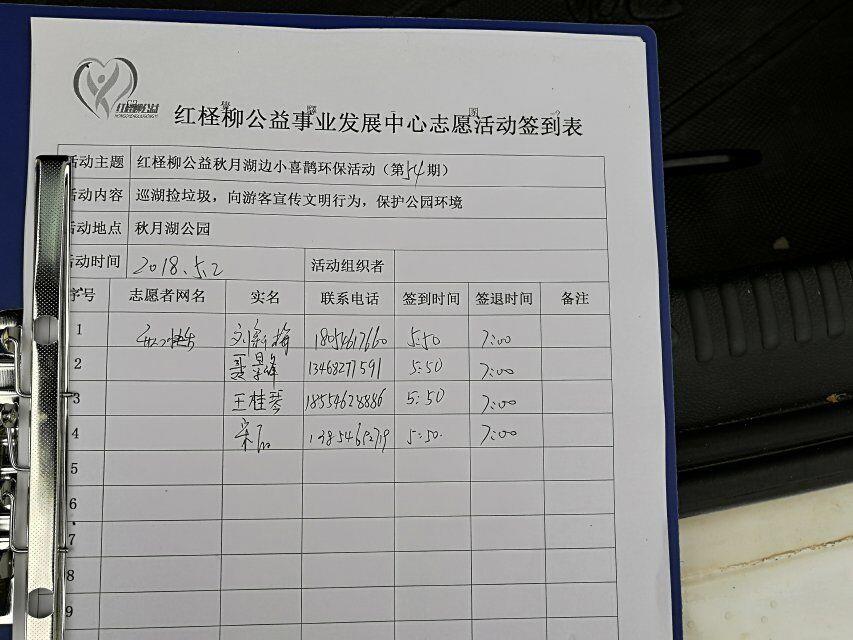 红柽柳公益
HONGCHENGLIUGONGYI
红柽柳公益事业发展中心志愿活动签到表
活动主题 红柽柳公益秋月湖边小喜鹊环保活动（第54期）
活动内容 巡湖捡垃圾，向游客宣传文明行为，保护公园环境
活动地点 秋月湖公园
活动时间 2018.5.2 活动组织者
序号 志愿者网名 实名 联系电话 签到时间 签退时间 备注
1 刘新梅 18054617660 5:50 7:00
2 聂景峰 13468277591 5:50 7:00
3 王桂琴 18554628886 5:50 7:00
4 13854692719 5:50. 7:00
5
6
7
8
9